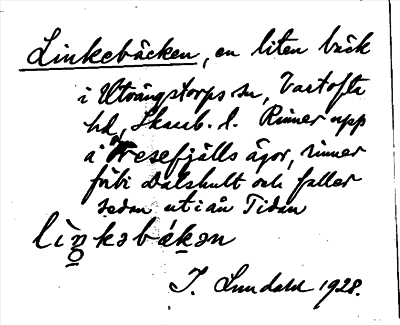 Linkebäcken, en liten bäck
i Utvängstorps sn, Vartofta
hd, Skarab. l. Rinner upp
å Tresefjälls ägor, rinner
förbi Dalshult och faller
sedan uti ån Tidan
I. Lundahl 1928.